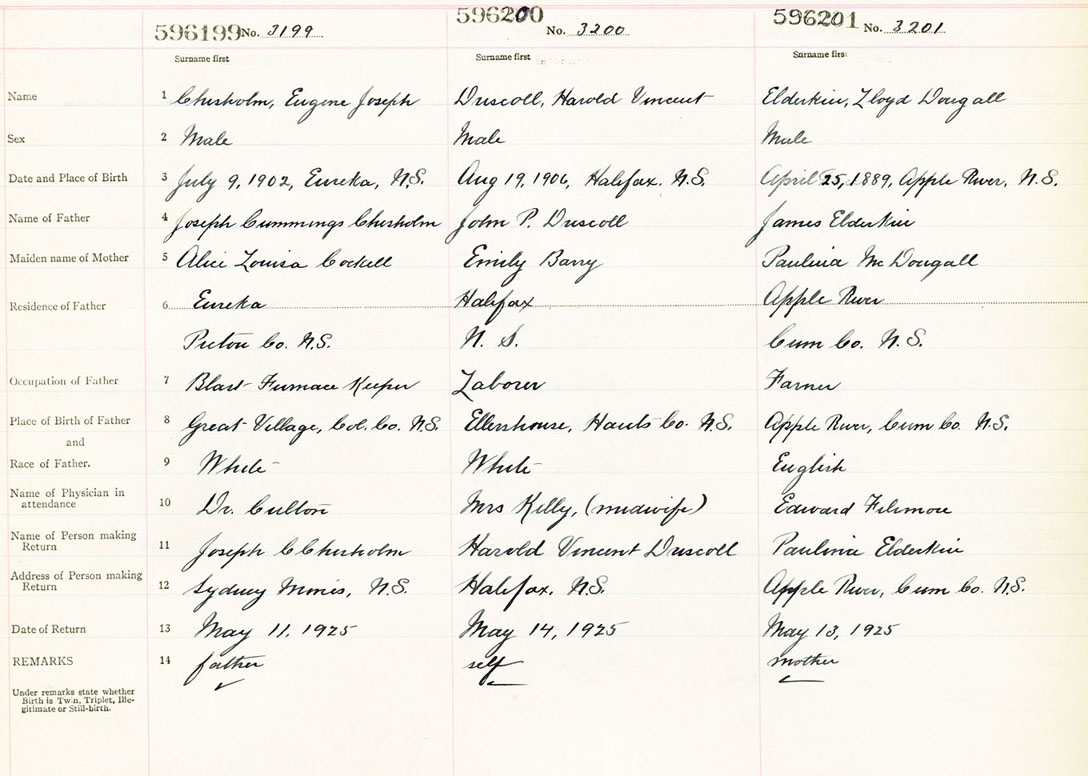 596199 No. 3199 596200 No. 3200 596201 No. 3201
Surname first Surname first Surname first
Name 1 Chisholm, Eugene Joseph Driscoll, Harold Vincent Elderkin, Lloyd Dougall
Sex 2 Male Male Male
Date and Place of Birth 3 July 9, 1902, Eureka, N.S. Aug 19, 1906, Halifax. N.S. April 25, 1889, Apple River, N.S.
Name of Father 4 Joseph Cummings Chisholm John P. Driscoll James Elderkin
Maiden name of Mother 5 Alice Louisa Cockell Emily Barry Paulina McDougall
Residence of Father 6 Eureka Halifax Apple River
Pictou Co. N.S. N. S. Cum Co. N.S.
Occupation of Father 7 Blast Furnace Keeper Laborer Farmer
Place of Birth of Father 8 Great Village, Col. Co. N.S. Ellershouse, Hants Co. N.S. Apple River, Cum Co. N.S.
and
Race of Father. 9 White White English
Name of Physician in attendance 10 Dr. Culton Mrs Kelly, (midwife) Edward Filimore
Name of Person making Return 11 Joseph C Chisholm Harold Vincent Driscoll Paulina Elderkin
Address of Person making Return 12 Sydney Mines, N.S. Halifax, N.S. Apple River, Cum Co. N.S.
Date of Return 13 May 11, 1925 May 14, 1925 May 13, 1925
REMARKS 14 father self mother
Under remarks state whether
Birth is Twin, Triplet, Ille-
gitimate or Still-birth.